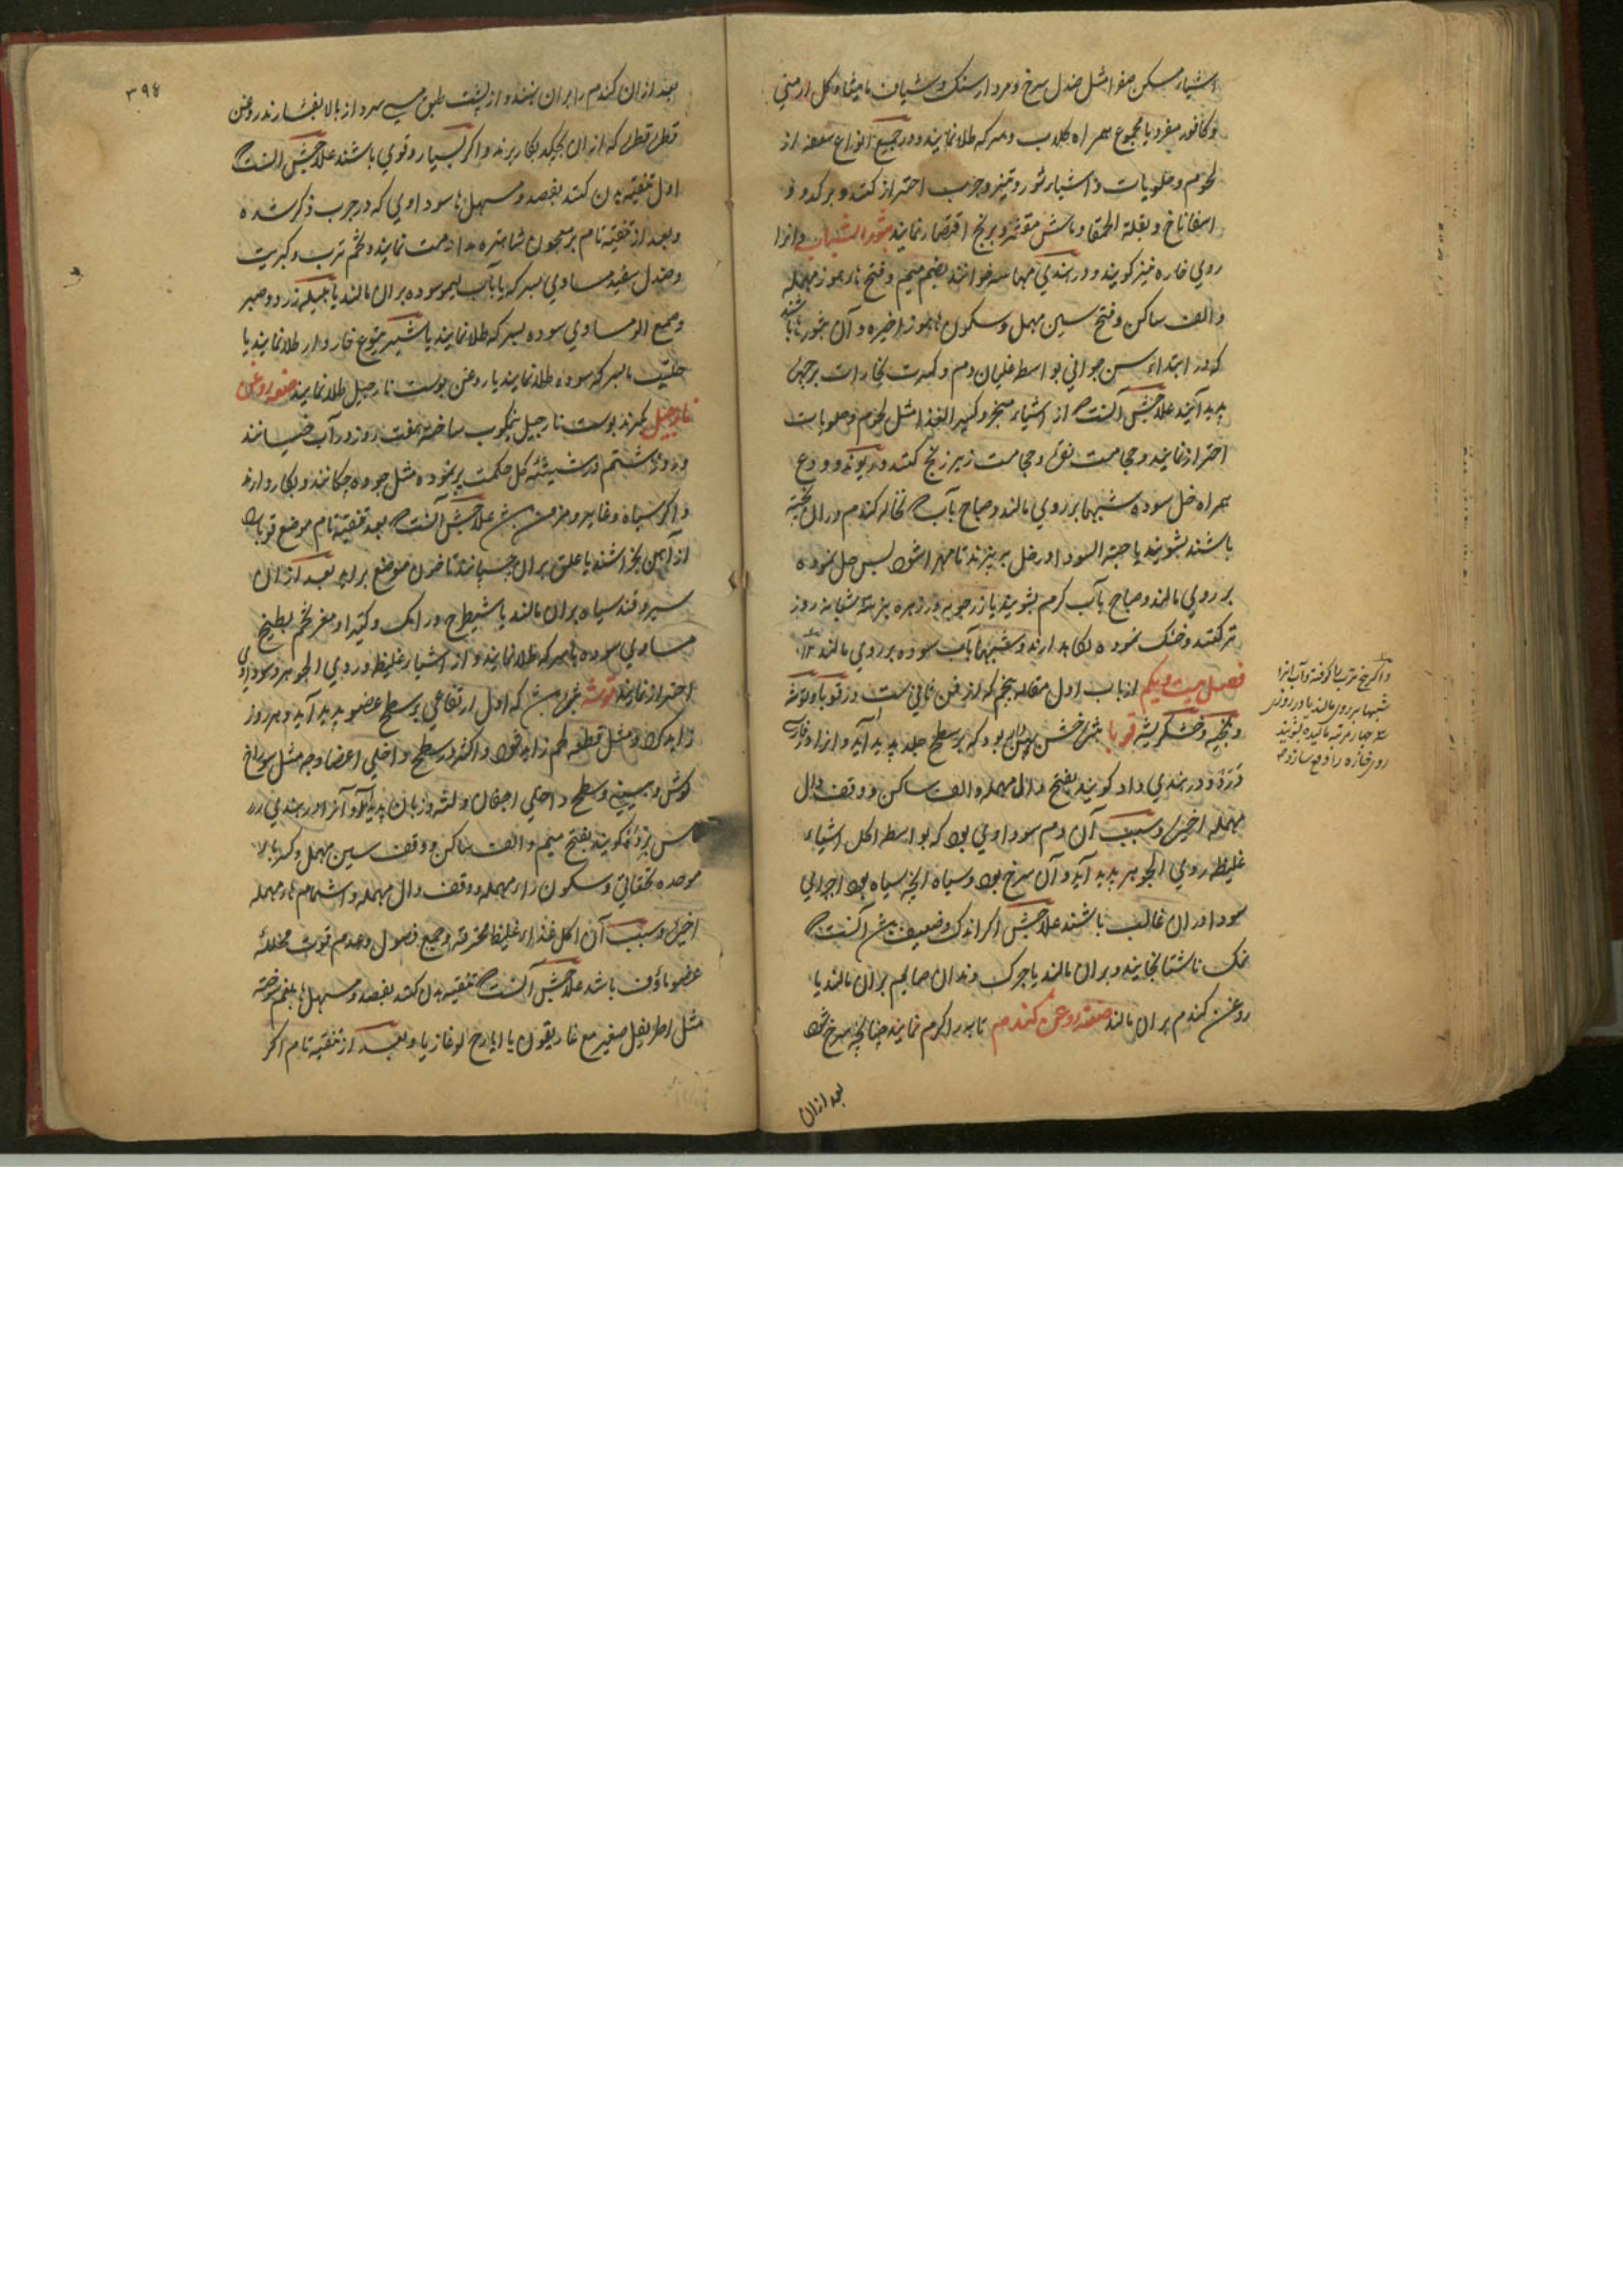 اشیاء مسکن صفرا مثل صندل سرخ و مردارسنک و شیاف مامیثا و کل ارمنی
و کافور مفرد یا مجموع همراه کلاب و سرکه طلا نمایند و در جمیع انواع سعفه از
لحوم و حلویات و اشیاء شور و تیز و چرب احتراز کنند و بر کدو و
اسفاناخ و بقلة الحمقا و ماش مقشر و برنج اقتصار نمایند بثور الشباب و انرا
روی خاره نیز کویند و در هندی مهاسه خوانند بضم میم و فتح هاء هوز مهمله
و الف ساکن و فتح سین مهمل و سکون هاء هوز اخیره و آن بثورها باشند
که در ابتداء سن جوانی بواسطه غلیان دم و کثرت بخارات بر جبهه
پدید آیند علاجش آنست که از اشیاء مبخر و کثیر الغذا مثل لحوم و حلویات
احتراز نمایند و حجامت نقره و حجامت زیر زنخ کنند و ریوند و ودع
همراه خل سوده شبها بر روی مالند و صباح بآب که نخاله کندم دران پخته
باشند بشویند یا حبة السودا در خل بپزند تا مهرا شود پس حل نموده
بر روی مالند و صباح بآب کرم بشویند یا زرچوبه در زهره بز سه شبانه روز
تر کنند و خشک نموده نکاه دارند و شبها بآب سوده بر روی مالند
فصل بیست و یکم از باب اول مقاله پنجم که از فن ثانی ست در قوبا و توثه
و بخیه و خشکریشه قوبا بثرۀ خشن بود که بر سطح جلد پدید آید و انرا در فارسی
و در هندی داد کویند بفتح دال مهمله و الف ساکن و وقف دال
مهمله اخیره و سبب آن دم سوداوی بود که بواسطه اکل اشیاء
غلیظه ردی الجوهر پدید آید و آن سرخ بود و سیاه انچه سیاه بود اجزای
سودا دران غالب باشند علاجش اکر اندک و ضعیف بود آنست که
نمک ناشتا بخایند و بران مالند یا چرک دندان صایم بران مالند یا
روغن کندم بران مالند صفة روغن کندم تابه را کرم نمایند چنانچه سرخ شود
بعد ازان
و اکر بیخ ترب را کوفته و آب انرا
شبها بر روی مالند یا در روزی
سه چهار مرتبه مالیده بشویند
روی خاره را دفع سازد
۳۹۴
بعد ازان کندم را بران نهند و از پشت طبق مسی سرد از بالا بفشارند روغن
قطره قطره که ازان بچکد بکار برند و اکر بسیار و قوی باشند علاجش آنست که
اول تنقیه بدن کنند بفصد و مسهل ها سوداوی که در جرب ذکر شده
و بعد از تنقیه تام بر معجون شاهتره مداومت نمایند و تخم ترب و کبریت
و صندل سفید مساوی بسرکه یا بآب لیمو سوده بران مالند یا هلیله زرد و صبر
و صمغ الو مساوی سوده بسرکه طلا نمایند یا شیر یتوع خاردار طلا نمایند یا
حلتیت بسرکه سوده طلا نمایند یا روغن پوست نارجیل طلا نمایند صفة روغن
نارجیل بکیرند پوست نارجیل نیمکوب ساخته هفت روز در آب خیسانند
و روز هشتم در شیشه کل حکمت پر نموده مثل چووه چکانند و بکار دارند
و اکر سیاه و غایر و مزمن بود علاجش آنست که بعد تنقیه تام موضع قوبا را
از آهن بخراشند یا علق بران چسپانند تا خون موضع براید بعد ازان
سیر و قند سیاه بران مالند یا شیطرج و رامک و کتیرا و مغز تخم بطیخ
مساوی سوده با سرکه طلا نمایند و از اشیاء غلیظ و ردی الجوهر و سوداوی
احتراز نمایند توثه مرضی ست که اول ارتفاعی بر سطح عضو پدید آید و هر روز
زاید کردد و مثل قطعه لحم زاید شود و اکثر در سطح داخلی اعضا وجه مثل سوراخ
کوش و بینی و سطح داخلی اجفان و لثه و زبان پدید آید و آنرا در هندی
ماس بردد کویند بفتح میم و الف ساکن و وقف سین مهمل و کسر باء
موحده تحتانی و سکون راء مهمله و وقف دال مهمله و اشمام هاء مهمله
اخیره و سبب آن اکل غذاء غلیظ محترقه و جمیع فصول و عدم قوت محلله
عضو ماؤف باشد علاجش آنست که تنقیه بدن کنند بفصد و مسهل ها بلغم سوخته
مثل اطریفل صغیر مع غاریقون یا ایارج لوغازیا و بعد از تنقیه تام اکر